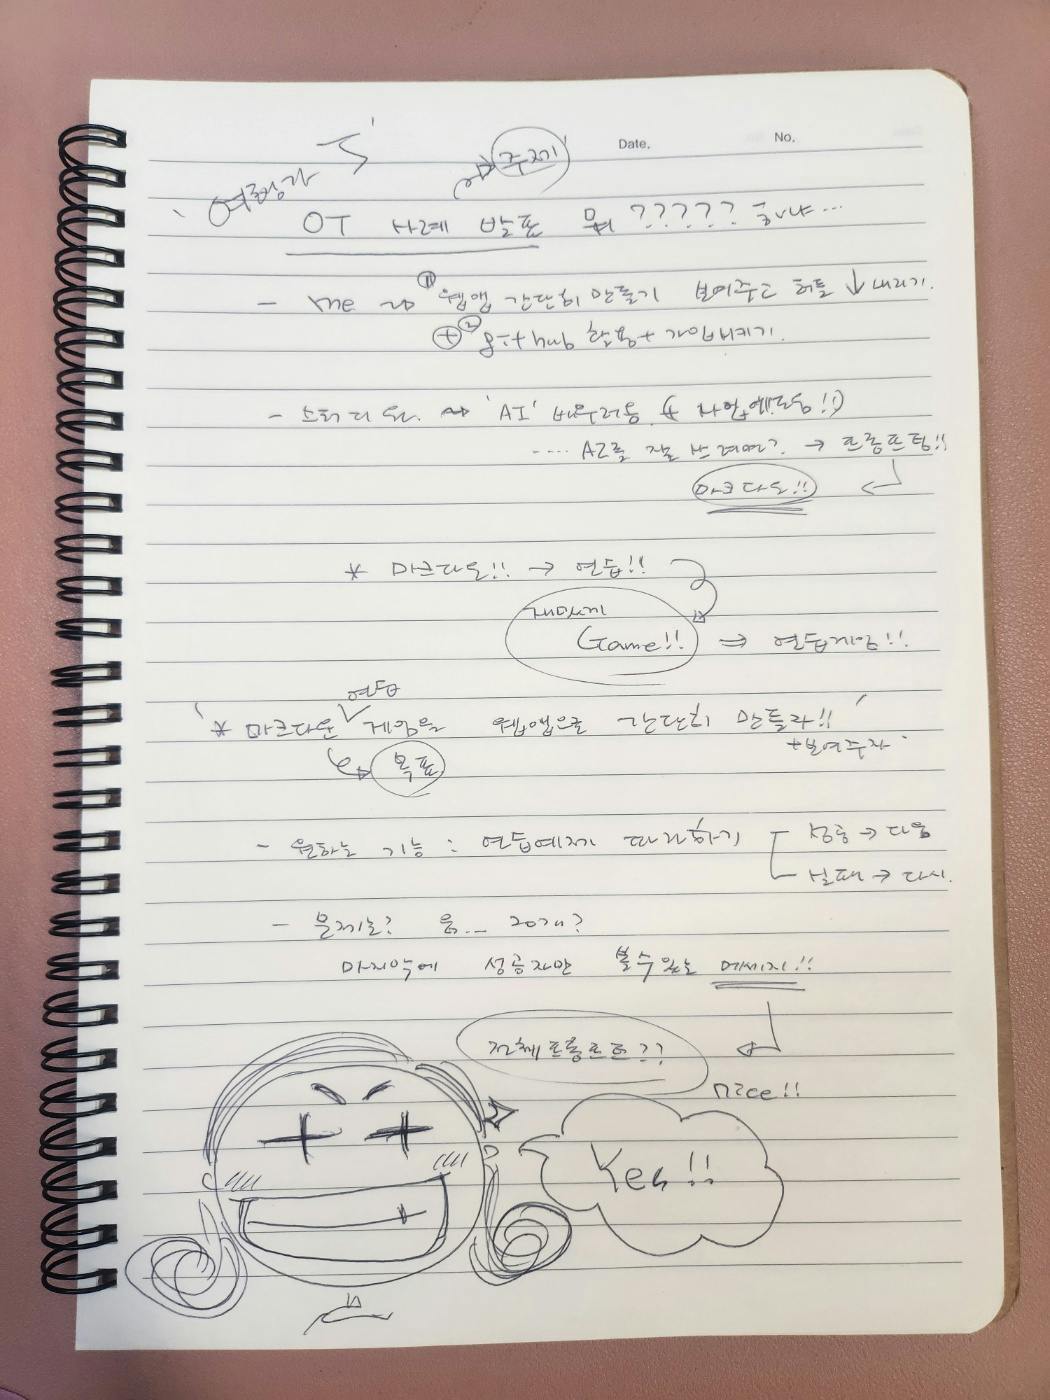 Date. No.
주제
OT 사례 발표 뭐 ?????
- me ① 웹앱 간단히 만들기 보여주고 허들 ↓ 내리기.
⊕ ② 활용 +
- 스터디 'AI' 배우러옴
.... AI를 잘 쓰려면? → 프롬프팅!!
마크다운!!
* 마크다운!! → 연습!!
재밌게
Game!! ⇒ 연습게임!!
연습
* 마크다운 게임을 웹앱으로 간단히 만들라!!
+보여주자
목표
- 원하는 기능 : 연습예제 따라하기
성공 → 다음
실패 → 다시.
- 문제는? 음... 20개?
마지막에 성공자만 볼수있는 메세지!!
전체프롬프트??
nice!!
Yes!!